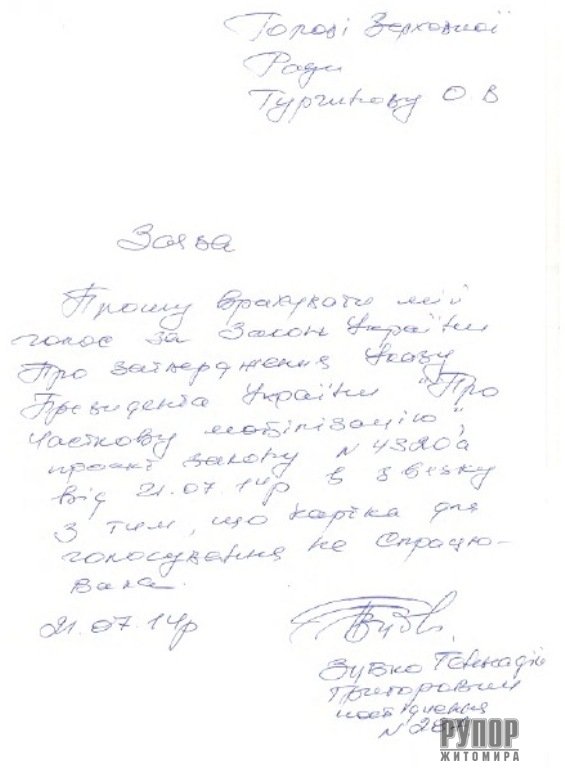 Голові Верховної
Ради
Турчинову О.В
Заява
Прошу врахувати мій
голос за Закон України
Про затвердження Указу
Президента України "Про
часткову мобілізацію",
проект закону N 4320а
від 21.07.14р в звязку
з тим, що картка для
голосування не спрацю-
вала.
21.07.14р
Зубко Геннадій
Григорович
посвідчення
N
РУПОР
ЖИТОМИРА